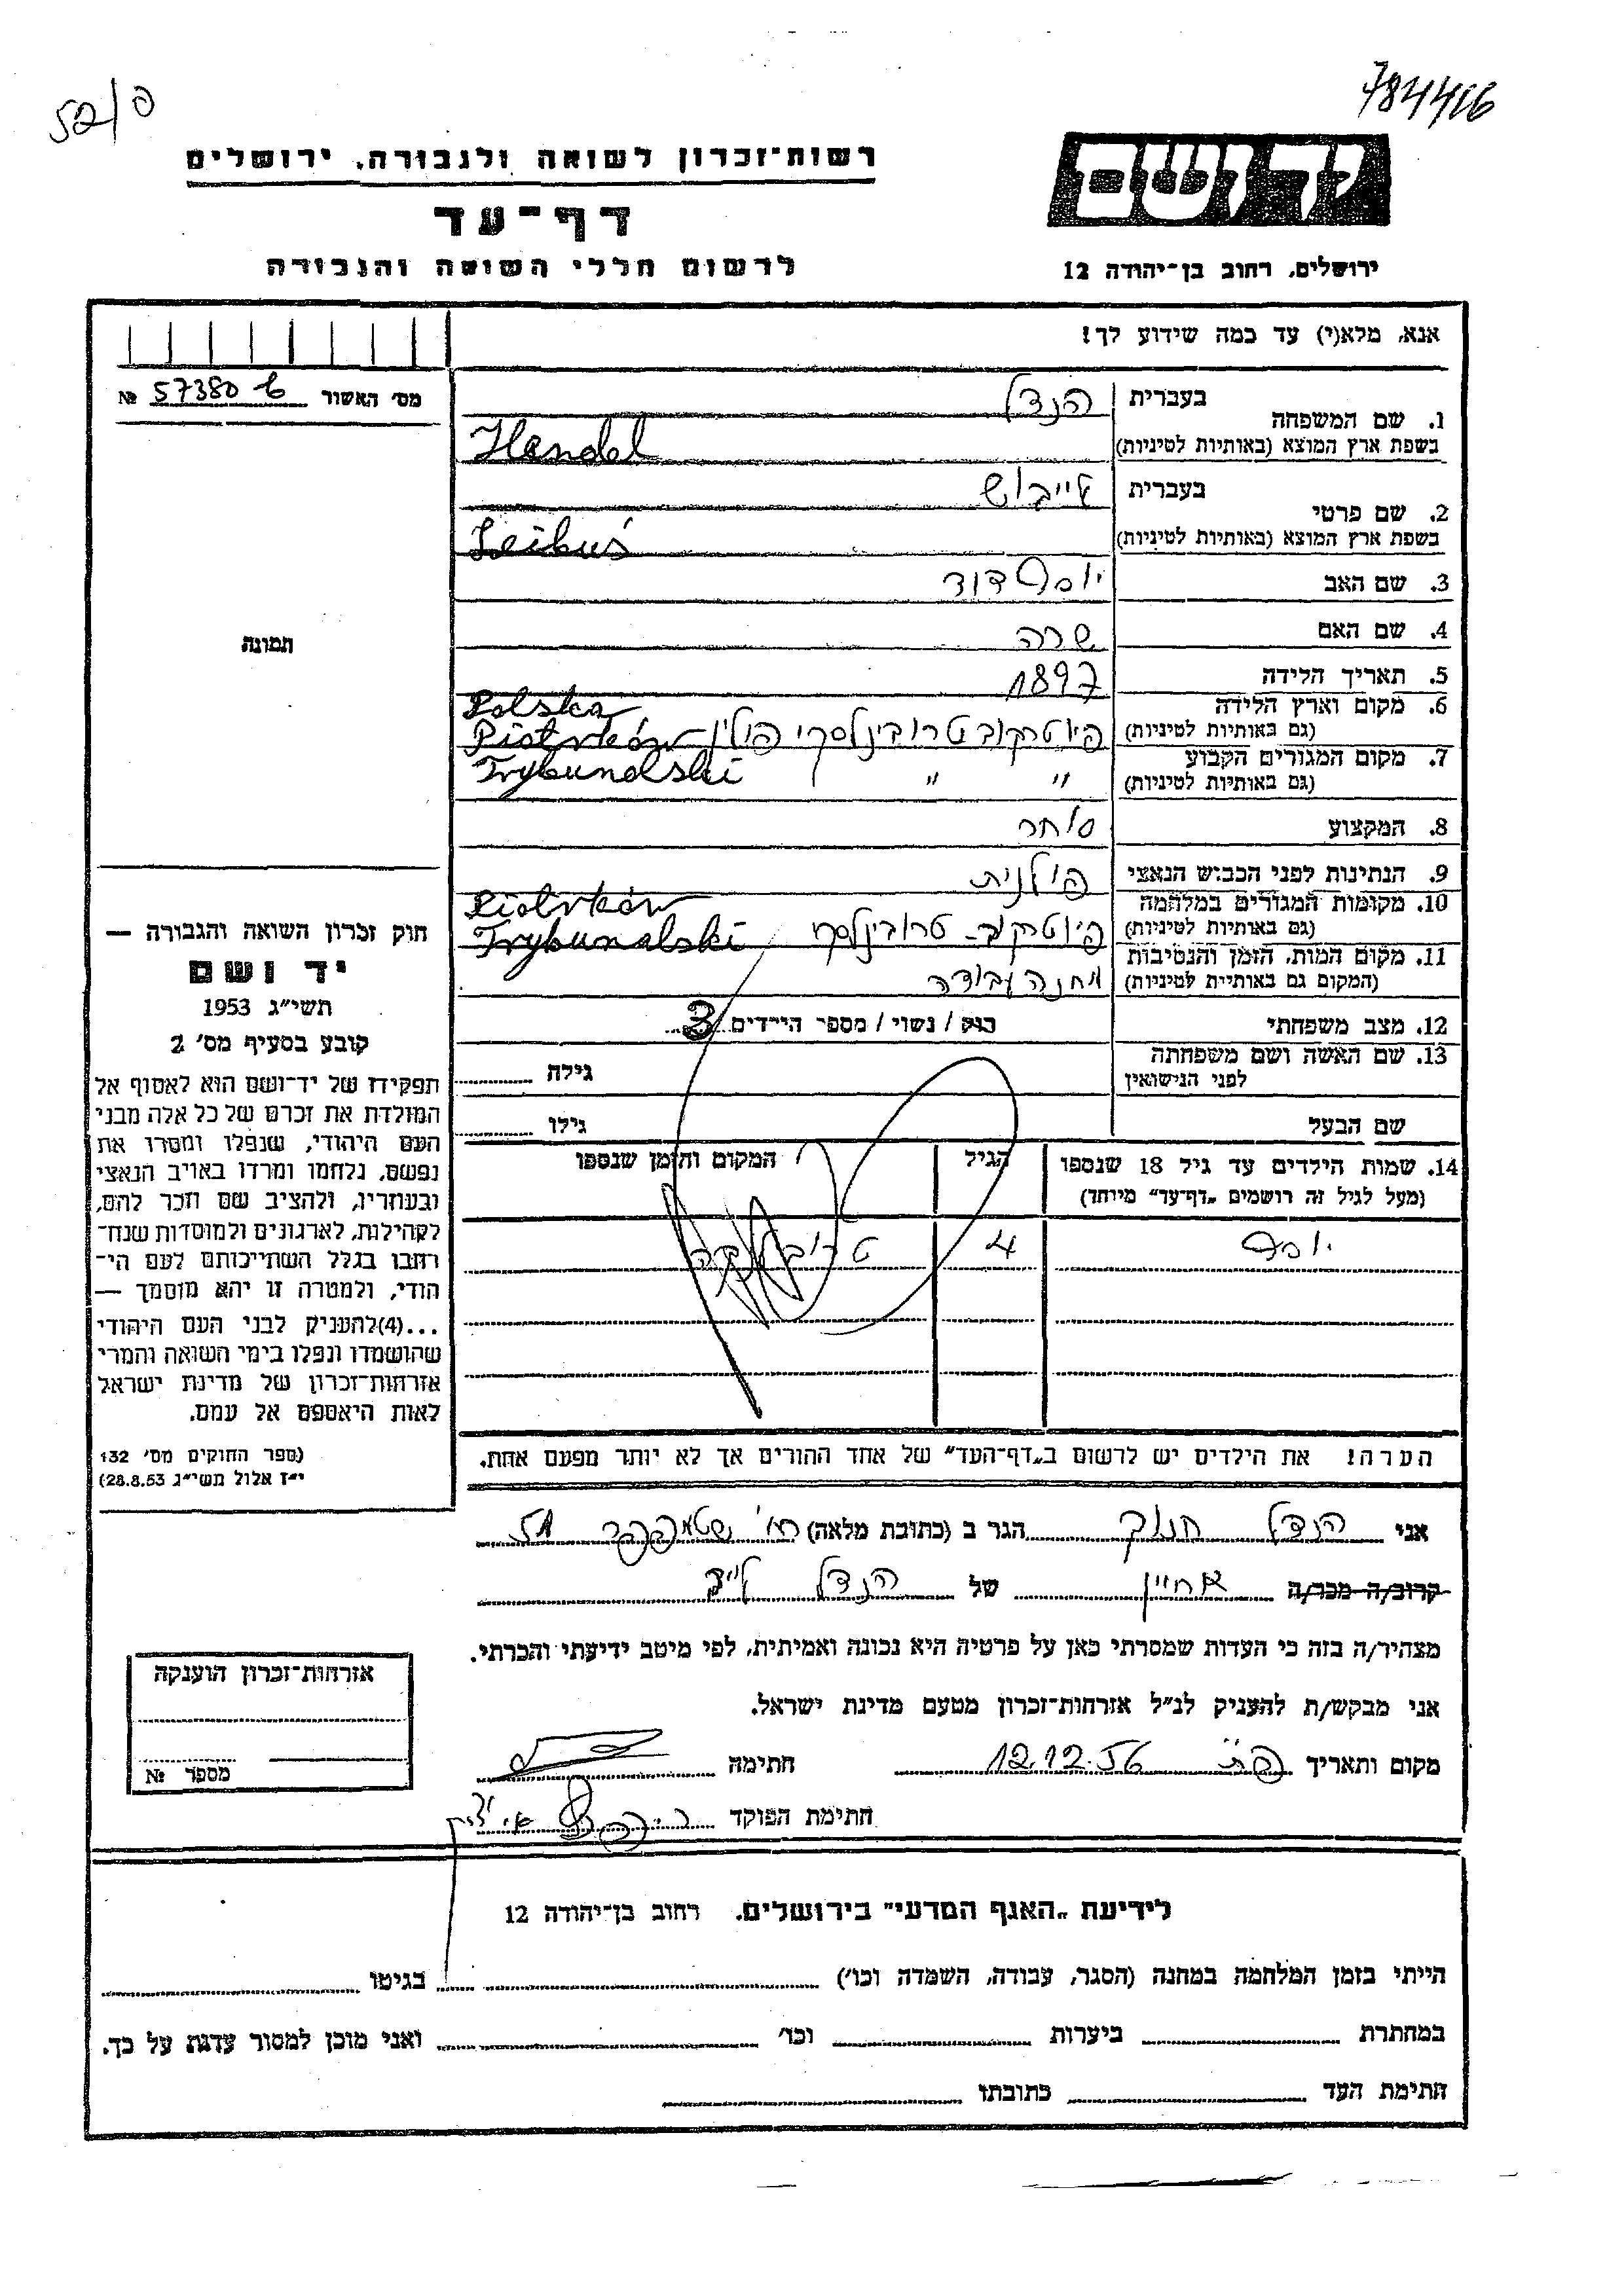 784416
52/ה
יד ושם
רשות־זכרון לשואה ולגבורה, ירושלים
דף־עד
לרשום חללי השואה והגבורה
ירושלים, רחוב בן־יהודה 12
אנא, מלא(י) עד כמה שידוע לך!
מס׳ האשור 57380 №
1. שם המשפחה
בעברית הנדל
בשפת ארץ המוצא (באותיות לטיניות) Handel
2. שם פרטי
בעברית לייבוש
בשפת ארץ המוצא (באותיות לטיניות) Leibuś
3. שם האב יוסף דוד
4. שם האם שרה
5. תאריך הלידה 1897
6. מקום וארץ הלידה
(גם באותיות לטיניות) פיוטרקוב טרובינלסקי פולין Polska Piotrków Trybunalski
7. מקום המגורים הקבוע
(גם באותיות לטיניות) " "
8. המקצוע סוחר
9. הנתינות לפני הכבוש הנאצי פולנית
10. מקומות המגורים במלחמה
(גם באותיות לטיניות) פיוטרקוב - טרובינלסקי Piotrków Trybunalski
11. מקום המות, הזמן והנסיבות
(המקום גם באותיות לטיניות) מחנה עבודה
12. מצב משפחתי רוק / נשוי / מספר הילדים 3
13. שם האשה ושם משפחתה
לפני הנישואין גילה
שם הבעל גילו
14. שמות הילדים עד גיל 18 שנספו הגיל המקום והזמן שנספו
(מעל לגיל זה רושמים „דף־עד״ מיוחד)
יוסף 4 טרובלינקה
הערה! את הילדים יש לרשום ב„דף־העד״ של אחד ההורים אך לא יותר מפעם אחת.
תמונה
חוק זכרון השואה והגבורה —
יד ושם
תשי״ג 1953
קובע בסעיף מס׳ 2
תפקידו של יד־ושם הוא לאסוף אל
המולדת את זכרם של כל אלה מבני
העם היהודי, שנפלו ומסרו את
נפשם, נלחמו ומרדו באויב הנאצי
ובעוזריו, ולהציב שם וזכר להם,
לקהילות, לארגונים ולמוסדות שנח־
רבו בגלל השתייכותם לעם הי־
הודי, ולמטרה זו יהא מוסמך —
...(4) להעניק לבני העם היהודי
שהושמדו ונפלו בימי השואה והמרי
אזרחות־זכרון של מדינת ישראל
לאות היאספם אל עמם.
(ספר החוקים מס׳ 132
י״ז אלול תשי״ג 28.8.53)
אני הנדל חנוך הגר ב (כתובת מלאה) רח׳ שטמפפר 51
קרוב/ה מכר/ה אחיין של הנדל לייב
מצהיר/ה בזה כי העדות שמסרתי כאן על פרטיה היא נכונה ואמיתית, לפי מיטב ידיעתי והכרתי.
אני מבקש/ת להעניק לנ״ל אזרחות־זכרון מטעם מדינת ישראל.
מקום ותאריך פ״ת 12.12.56 חתימה
חתימת הפוקד
אזרחות־זכרון הוענקה
מספר №
לידיעת „האגף המדעי״ בירושלים. רחוב בן־יהודה 12
הייתי בזמן המלחמה במחנה (הסגר, עבודה, השמדה וכו׳) בגיטו
במחתרת ביערות וכו׳ ואני מוכן למסור עדות על כך.
חתימת העד כתובתו